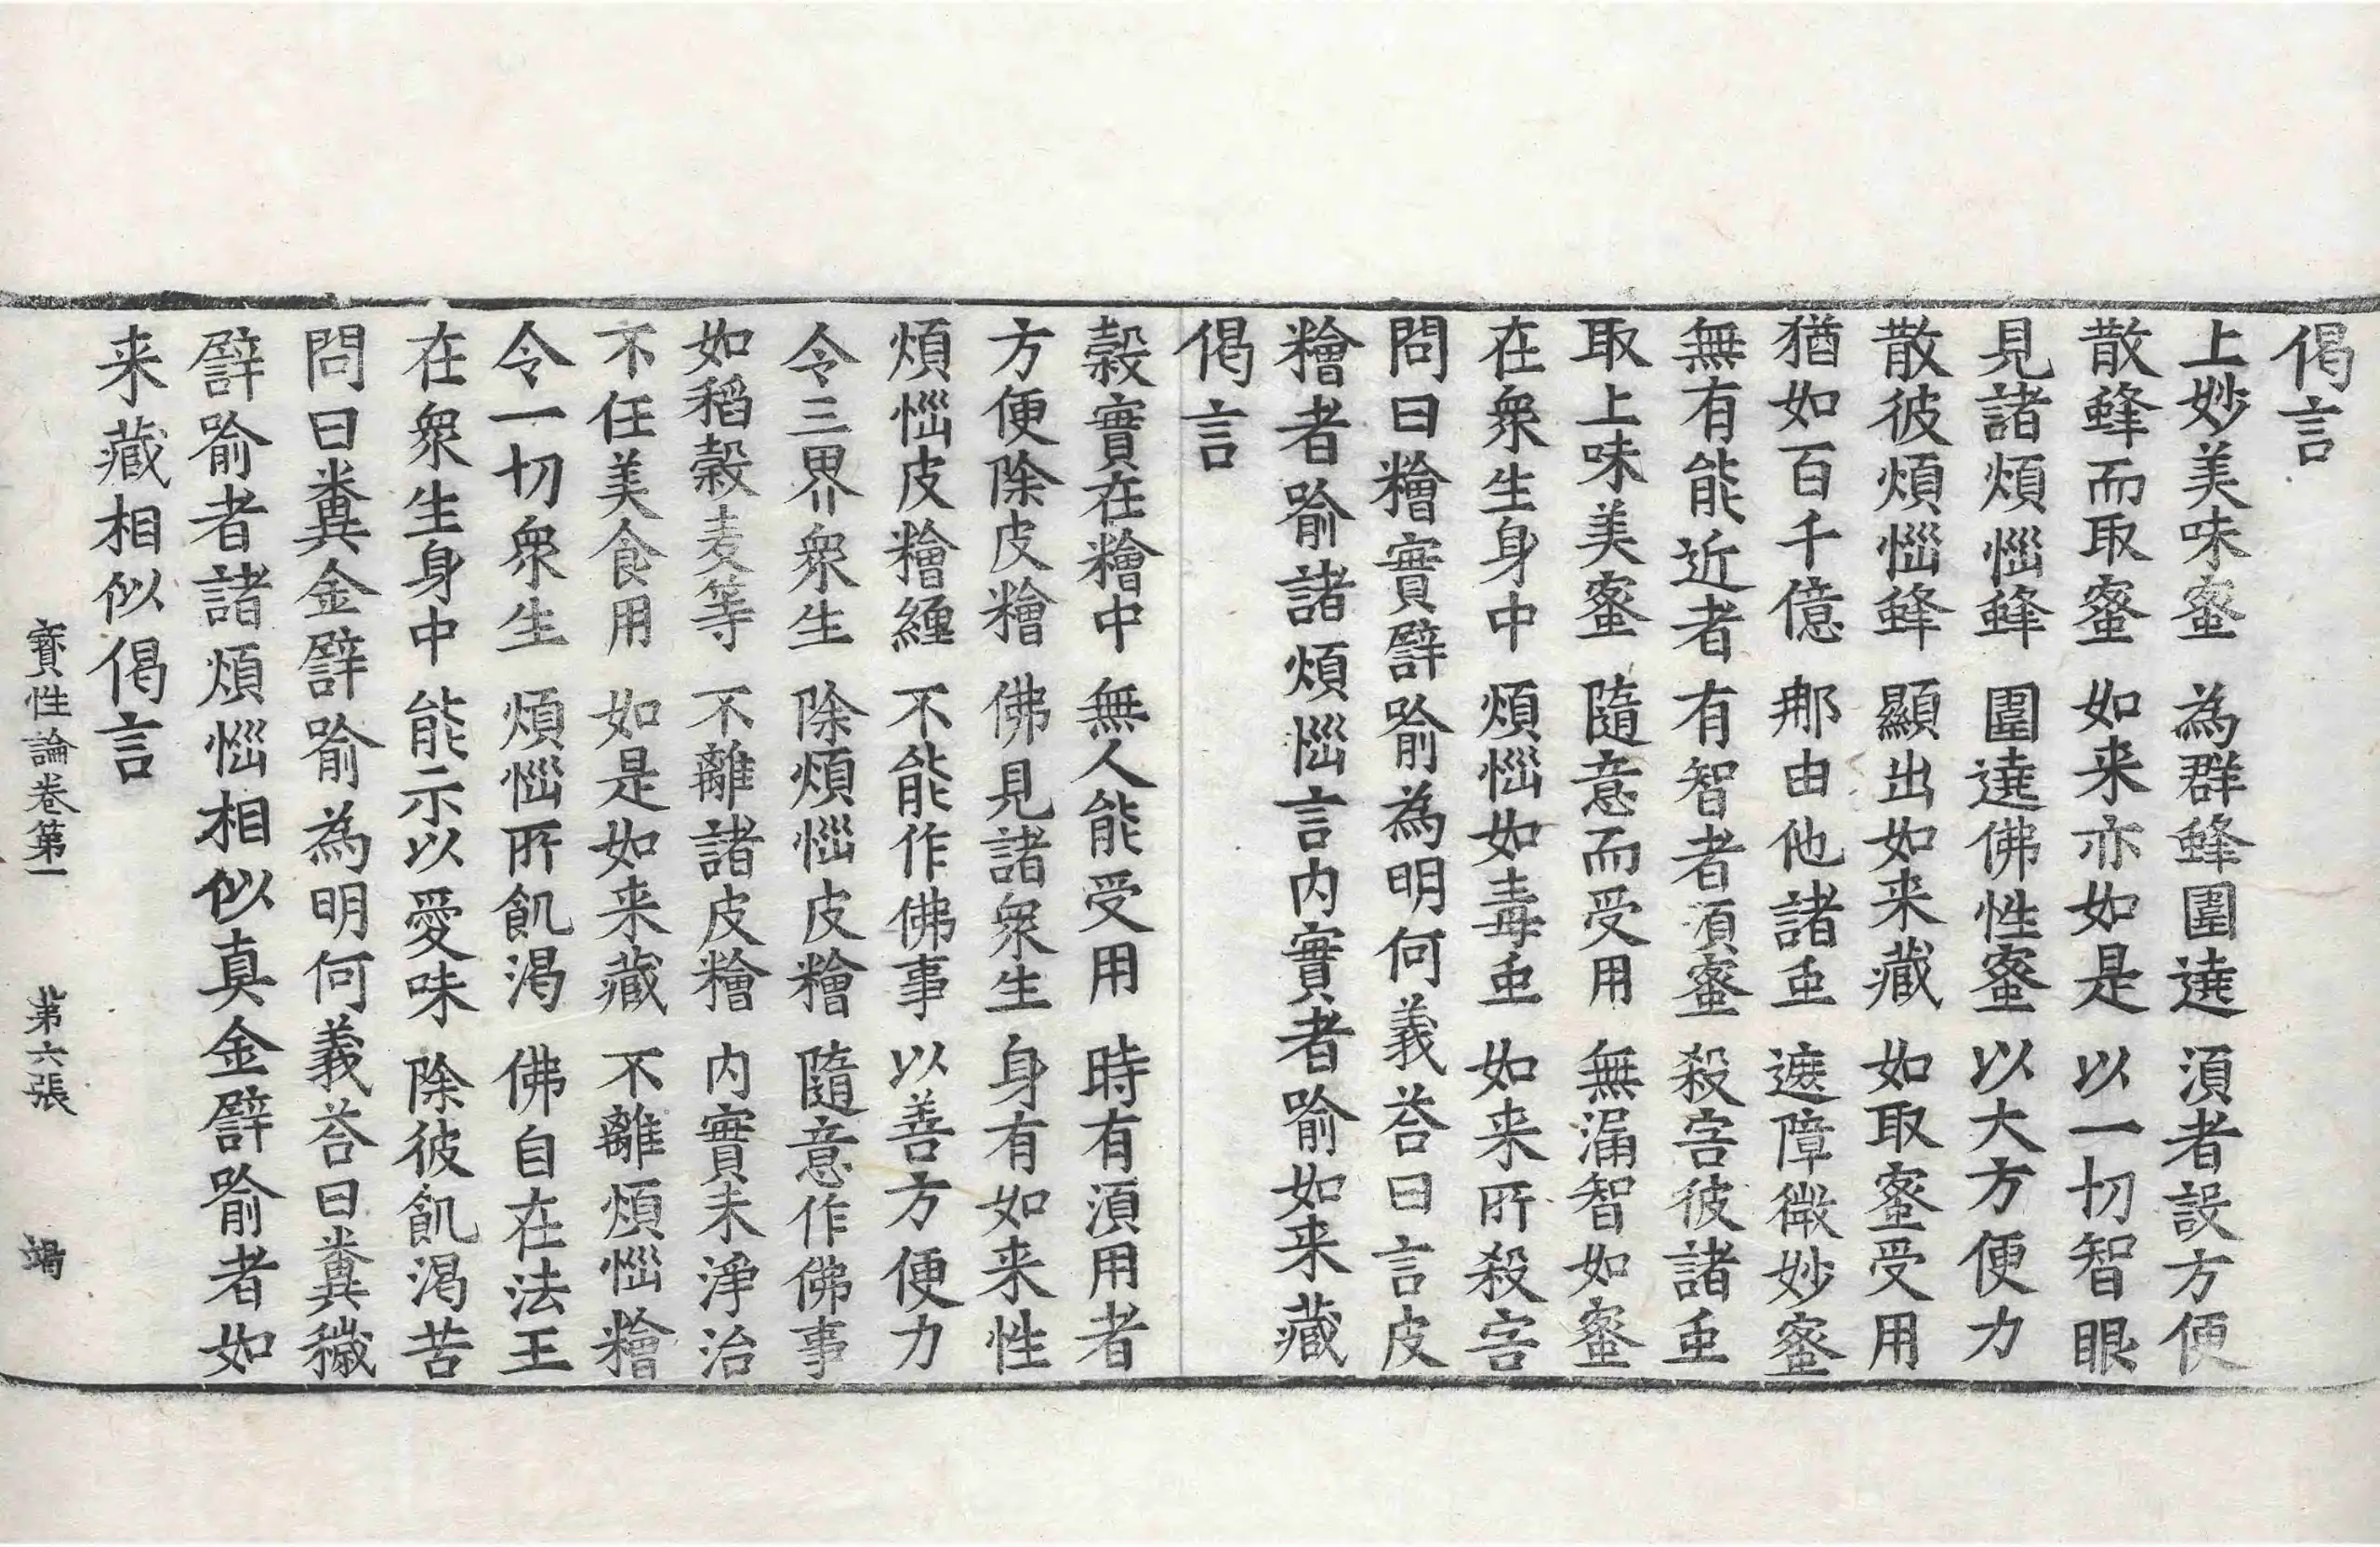 偈言
上妙美味蜜　為群蜂圍遶　湏者設方便
散蜂而取蜜　如来亦如是　以一切智眼
見諸煩惱蜂　圍遶佛性蜜　以大方便力
散彼煩惱蜂　顯出如来藏　如取蜜受用
猶如百千億　那由他諸䖝　遮障微妙蜜
無有能近者　有智者湏蜜　殺害彼諸䖝
取上味美蜜　隨意而受用　無漏智如蜜
在衆生身中　煩惱如毒䖝　如来所殺害
問曰䊪實譬喻為明何義荅曰言皮
䊪者喻諸煩惱言内實者喻如来藏
偈言
穀實在䊪中　無人能受用　時有湏用者
方便除皮䊪　佛見諸衆生　身有如来性
煩惱皮䊪纏　不能作佛事　以善方便力
令三界衆生　除煩惱皮䊪　隨意作佛事
如稻穀麦等　不離諸皮䊪　内實未淨治
不任美食用　如是如来藏　不離煩惱䊪
令一切衆生　煩惱所飢渴　佛自在法王
在衆生身中　能示以愛味　除彼飢渴苦
問曰糞金譬喻為明何義荅曰糞穢
譬喻者諸煩惱相似真金譬喻者如
来藏相似偈言
寶性論卷第一　第六張　竭